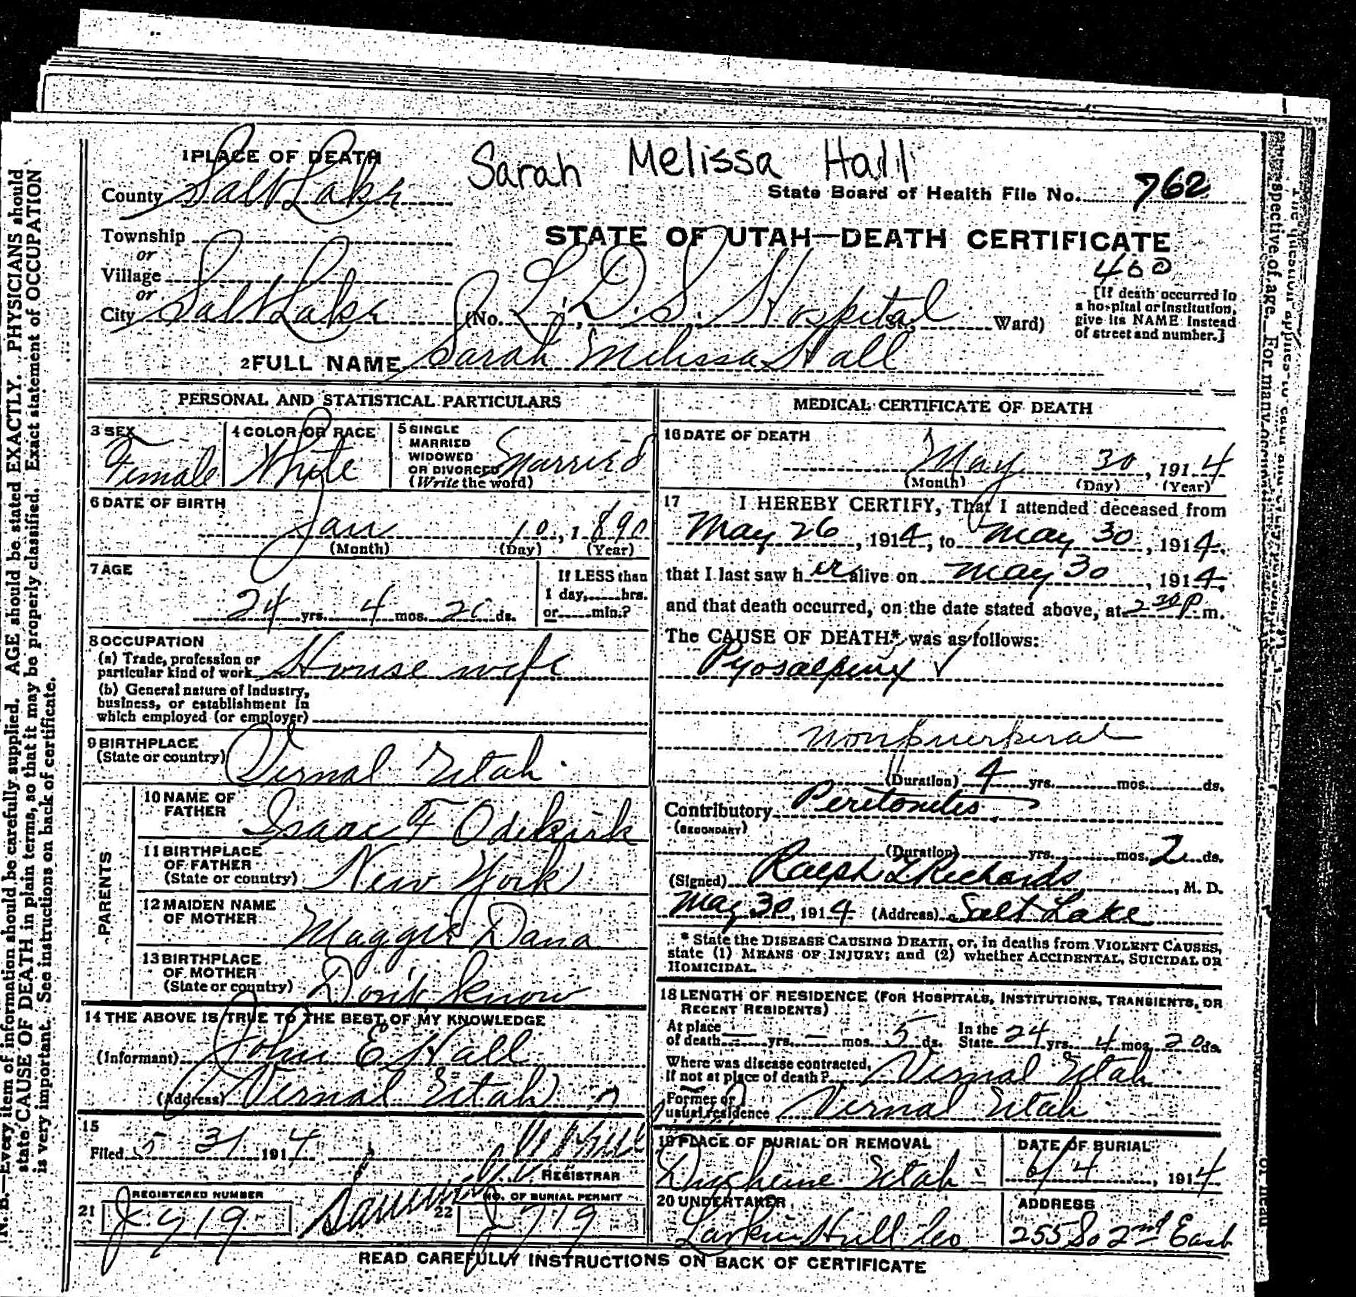 1 PLACE OF DEATH
Sarah Melissa Hall
County Salt Lake
State Board of Health File No. 762
Township
or
Village
or
City Salt Lake
STATE OF UTAH—DEATH CERTIFICATE
460
(No. L.D.S. Hospital St., Ward)
[If death occurred in
a hospital or institution,
give its NAME instead
of street and number.]
2 FULL NAME Sarah Melissa Hall
PERSONAL AND STATISTICAL PARTICULARS
3 SEX
Female
4 COLOR OR RACE
White
5 SINGLE
MARRIED
WIDOWED
OR DIVORCED
(Write the word)
Married
6 DATE OF BIRTH
Jan 10, 1890
(Month) (Day) (Year)
7 AGE
24 yrs. 4 mos. 20 ds.
If LESS than
1 day, hrs.
or min.?
8 OCCUPATION
(a) Trade, profession or
particular kind of work House wife
(b) General nature of Industry,
business, or establishment in
which employed (or employer)
9 BIRTHPLACE
(State or country) Vernal Utah
PARENTS
10 NAME OF
FATHER Isaac F Odekirk
11 BIRTHPLACE
OF FATHER
(State or country) New York
12 MAIDEN NAME
OF MOTHER Maggie Dana
13 BIRTHPLACE
OF MOTHER
(State or country) Don't know
14 THE ABOVE IS TRUE TO THE BEST OF MY KNOWLEDGE
(Informant) John E Hall
(Address) Vernal Utah
15
Filed 5 31 1914
REGISTRAR
REGISTERED NUMBER
21 J 719
NO. OF BURIAL PERMIT
22 J 719
MEDICAL CERTIFICATE OF DEATH
16 DATE OF DEATH
May 30, 1914
(Month) (Day) (Year)
17 I HEREBY CERTIFY, That I attended deceased from
May 26, 1914, to May 30, 1914,
that I last saw her alive on May 30, 1914,
and that death occurred, on the date stated above, at 2 30 P.m.
The CAUSE OF DEATH* was as follows:
Pyosalpinx
nonpuerperal
(Duration) 4 yrs. mos. ds.
Contributory Peritonitis
(SECONDARY)
(Duration) yrs. mos. 2 ds.
(Signed) Ralph T Richards, M. D.
May 30, 1914 (Address) Salt Lake
* State the DISEASE CAUSING DEATH, or, in deaths from VIOLENT CAUSES,
state (1) MEANS OF INJURY; and (2) whether ACCIDENTAL, SUICIDAL OR
HOMICIDAL.
18 LENGTH OF RESIDENCE (FOR HOSPITALS, INSTITUTIONS, TRANSIENTS, OR
RECENT RESIDENTS)
At place
of death — yrs. — mos. 5 ds. In the
State 24 yrs. 4 mos. 20 ds.
Where was disease contracted,
if not at place of death? Vernal Utah
Former or
usual residence Vernal Utah
19 PLACE OF BURIAL OR REMOVAL
Utah
DATE OF BURIAL
6/4, 1914
20 UNDERTAKER
Larkin Hull Co
ADDRESS
255 So 2nd East
READ CAREFULLY INSTRUCTIONS ON BACK OF CERTIFICATE
N. B.—Every item of information should be carefully supplied. AGE should be stated EXACTLY. PHYSICIANS should
state CAUSE OF DEATH in plain terms, so that it may be properly classified. Exact statement of OCCUPATION
is very important. See instructions on back of certificate.